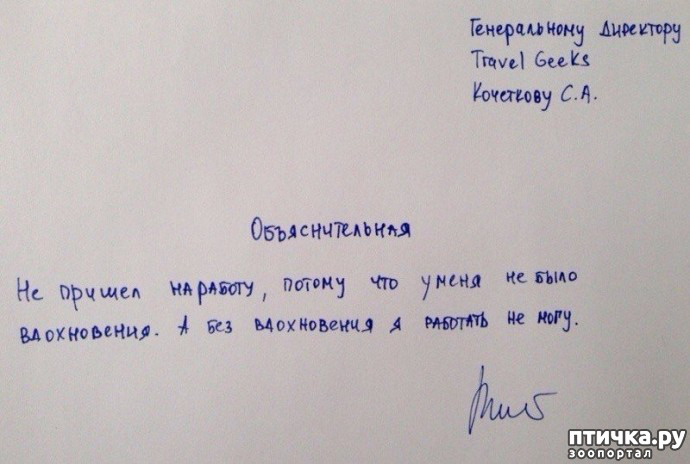 Генеральному Директору
Travel Geeks
Кочеткову С.А.
Объяснительная
Не пришел на работу, потому что у меня не было
вдохновения. А без вдохновения я работать не могу.
птичка.ру
зоопортал